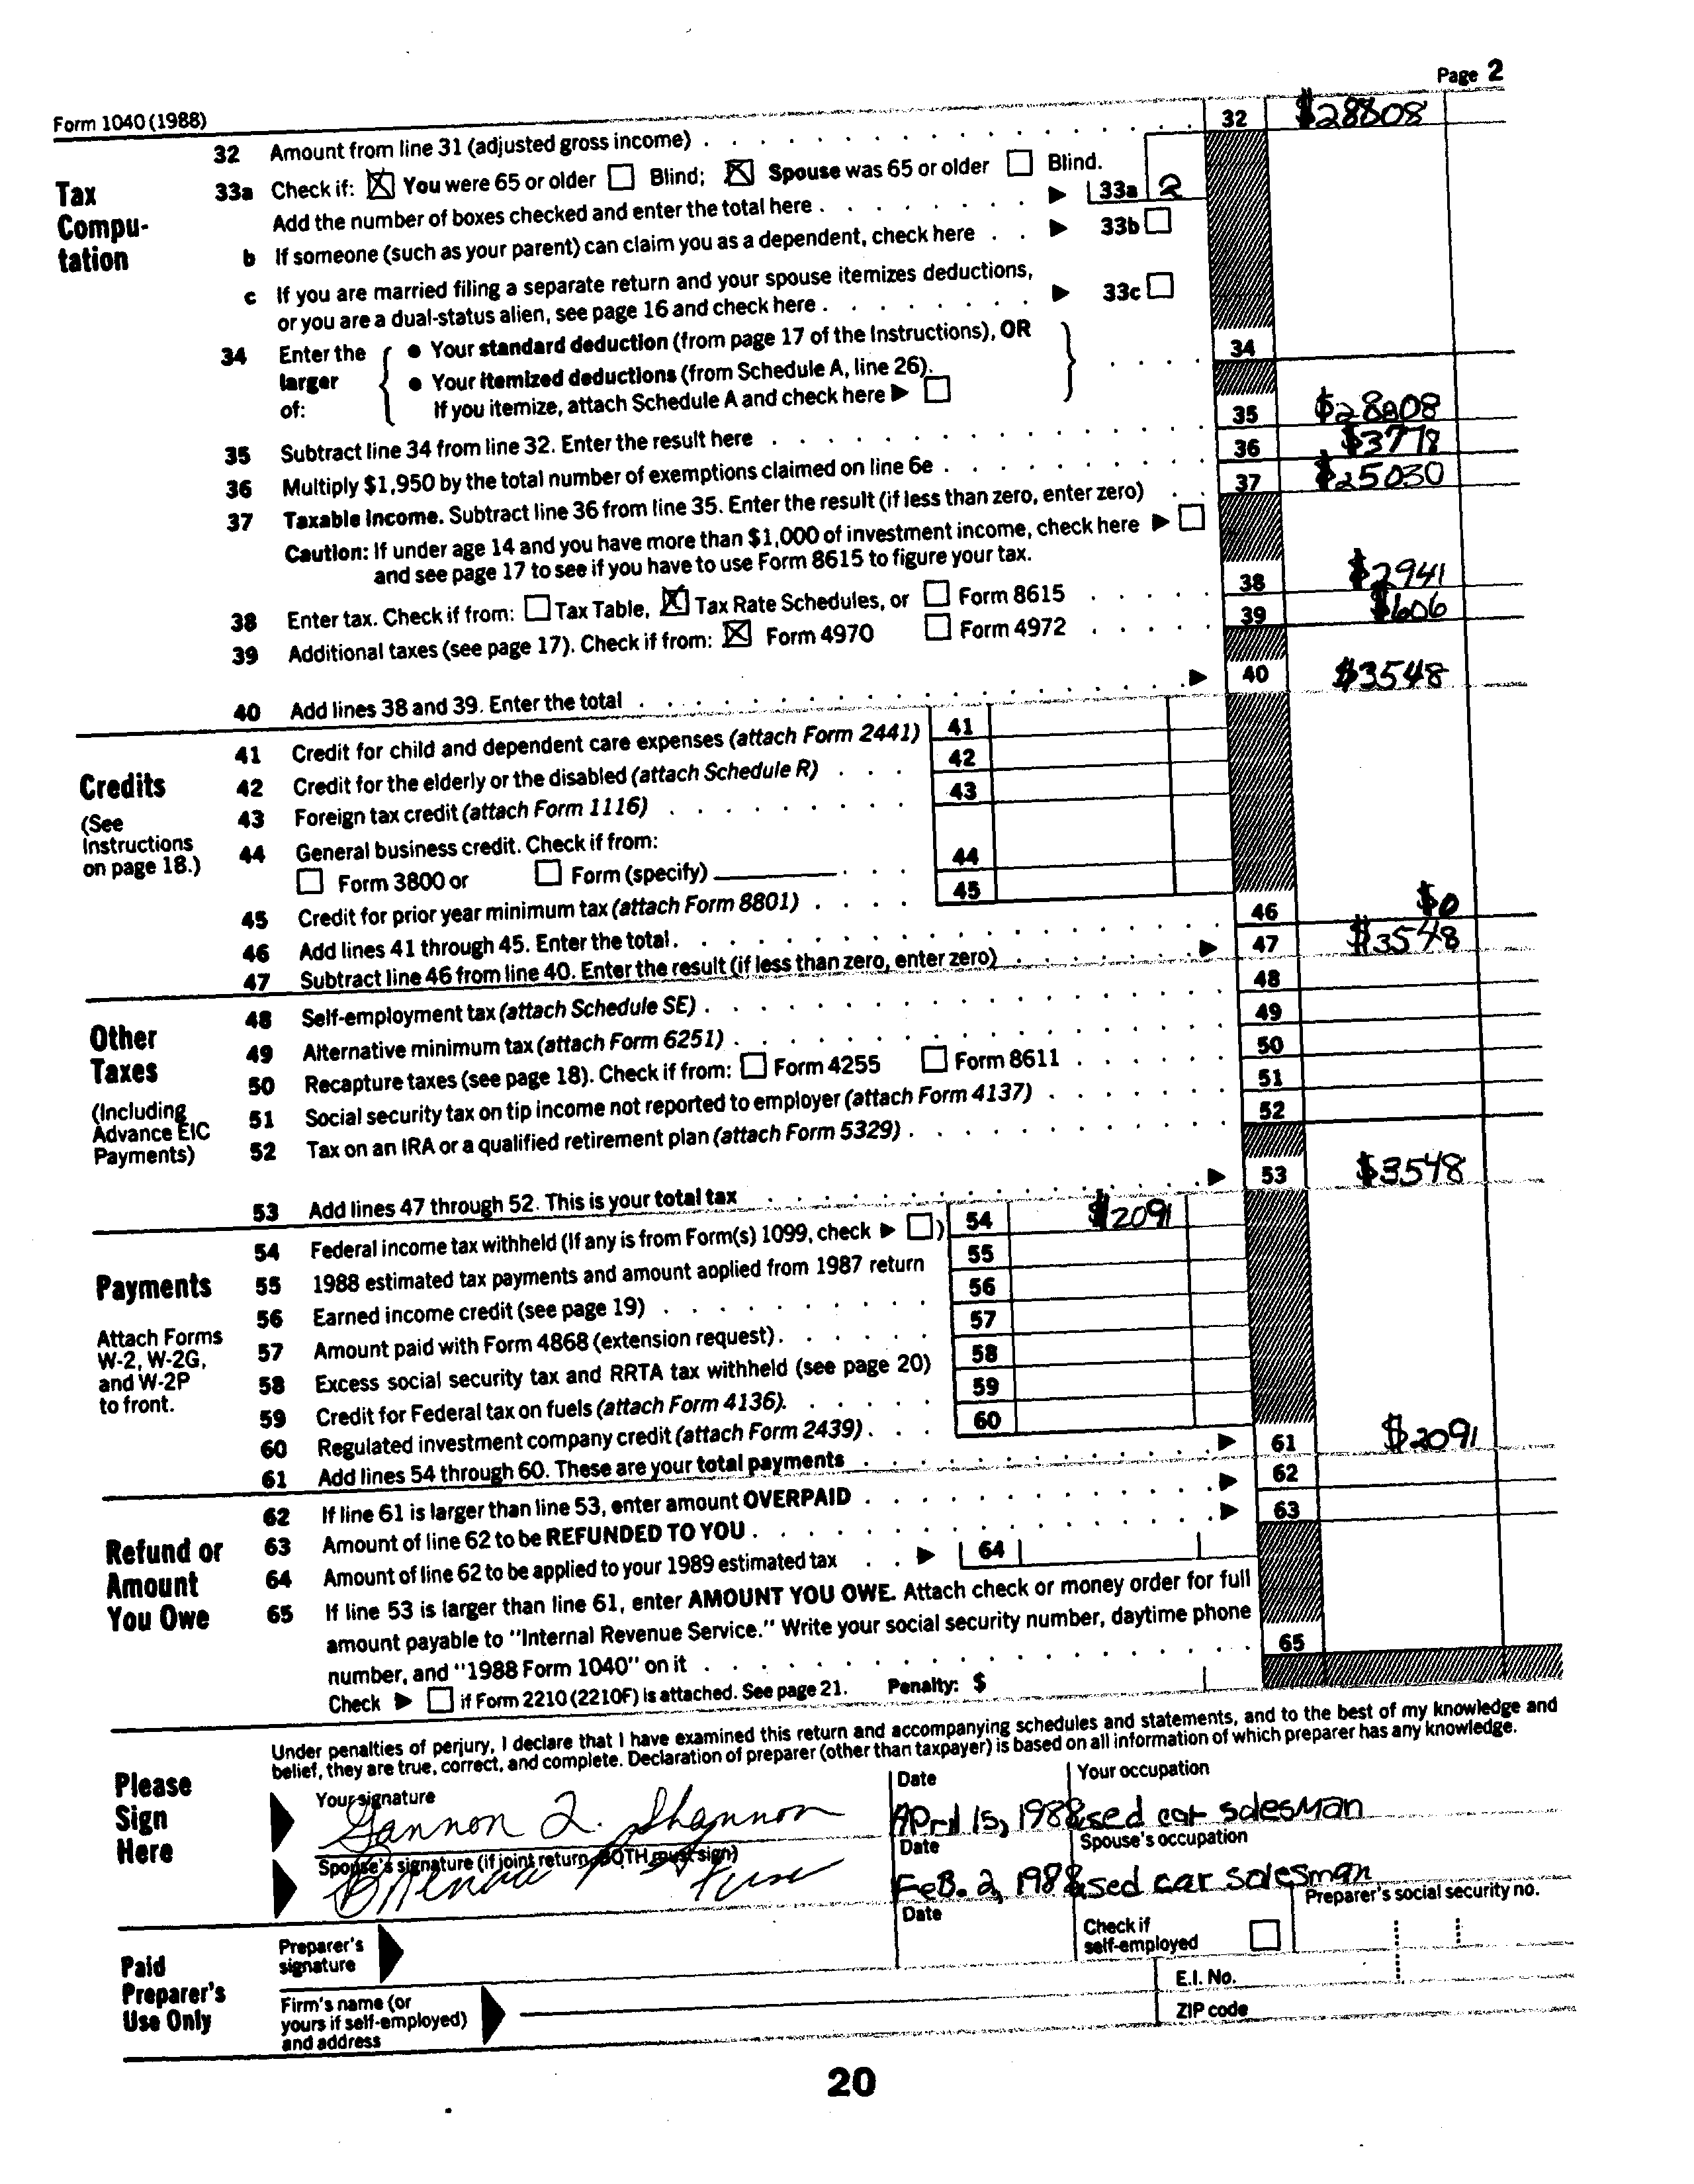 Page 2
Form 1040 (1988)
32 Amount from line 31 (adjusted gross income) 32 $28808
Tax Compu- tation
33a Check if: You were 65 or older Blind; Spouse was 65 or older Blind.
Add the number of boxes checked and enter the total here 33a 2
b If someone (such as your parent) can claim you as a dependent, check here 33b
c If you are married filing a separate return and your spouse itemizes deductions,
or you are a dual-status alien, see page 16 and check here 33c
34 Enter the larger of:
• Your standard deduction (from page 17 of the Instructions), OR 34
• Your itemized deductions (from Schedule A, line 26).
If you itemize, attach Schedule A and check here
35 Subtract line 34 from line 32. Enter the result here 35 $28808
36 Multiply $1,950 by the total number of exemptions claimed on line 6e 36 $3778
37 Taxable income. Subtract line 36 from line 35. Enter the result (if less than zero, enter zero) 37 $25030
Caution: If under age 14 and you have more than $1,000 of investment income, check here
and see page 17 to see if you have to use Form 8615 to figure your tax.
38 Enter tax. Check if from: Tax Table, Tax Rate Schedules, or Form 8615 38 $2941
39 Additional taxes (see page 17). Check if from: Form 4970 Form 4972 39 $606
40 Add lines 38 and 39. Enter the total 40 $3548
Credits
(See Instructions on page 18.)
41 Credit for child and dependent care expenses (attach Form 2441) 41
42 Credit for the elderly or the disabled (attach Schedule R) 42
43 Foreign tax credit (attach Form 1116) 43
44 General business credit. Check if from:
Form 3800 or Form (specify) 44
45 Credit for prior year minimum tax (attach Form 8801) 45
46 Add lines 41 through 45. Enter the total 46 $0
47 Subtract line 46 from line 40. Enter the result (if less than zero, enter zero) 47 $3548
Other Taxes
(Including Advance EIC Payments)
48 Self-employment tax (attach Schedule SE) 48
49 Alternative minimum tax (attach Form 6251) 49
50 Recapture taxes (see page 18). Check if from: Form 4255 Form 8611 50
51 Social security tax on tip income not reported to employer (attach Form 4137) 51
52 Tax on an IRA or a qualified retirement plan (attach Form 5329) 52
53 Add lines 47 through 52. This is your total tax 53 $3548
Payments
Attach Forms W-2, W-2G, and W-2P to front.
54 Federal income tax withheld (If any is from Form(s) 1099, check ) 54 $2091
55 1988 estimated tax payments and amount applied from 1987 return 55
56 Earned income credit (see page 19) 56
57 Amount paid with Form 4868 (extension request) 57
58 Excess social security tax and RRTA tax withheld (see page 20) 58
59 Credit for Federal tax on fuels (attach Form 4136) 59
60 Regulated investment company credit (attach Form 2439) 60
61 Add lines 54 through 60. These are your total payments 61 $2091
Refund or Amount You Owe
62 If line 61 is larger than line 53, enter amount OVERPAID 62
63 Amount of line 62 to be REFUNDED TO YOU 63
64 Amount of line 62 to be applied to your 1989 estimated tax 64
65 If line 53 is larger than line 61, enter AMOUNT YOU OWE. Attach check or money order for full
amount payable to "Internal Revenue Service." Write your social security number, daytime phone
number, and "1988 Form 1040" on it 65
Check if Form 2210 (2210F) is attached. See page 21. Penalty: $
Please Sign Here
Under penalties of perjury, I declare that I have examined this return and accompanying schedules and statements, and to the best of my knowledge and
belief, they are true, correct, and complete. Declaration of preparer (other than taxpayer) is based on all information of which preparer has any knowledge.
Your signature Date Your occupation
Gannon Q. Shannon April 15, 1988 used car salesman
Spouse's signature (if joint return, BOTH must sign) Date Spouse's occupation
FeB. 2, 1988 used car salesman
Paid Preparer's Use Only
Preparer's signature Date Check if self-employed Preparer's social security no.
Firm's name (or yours if self-employed) and address E.I. No.
ZIP code
20